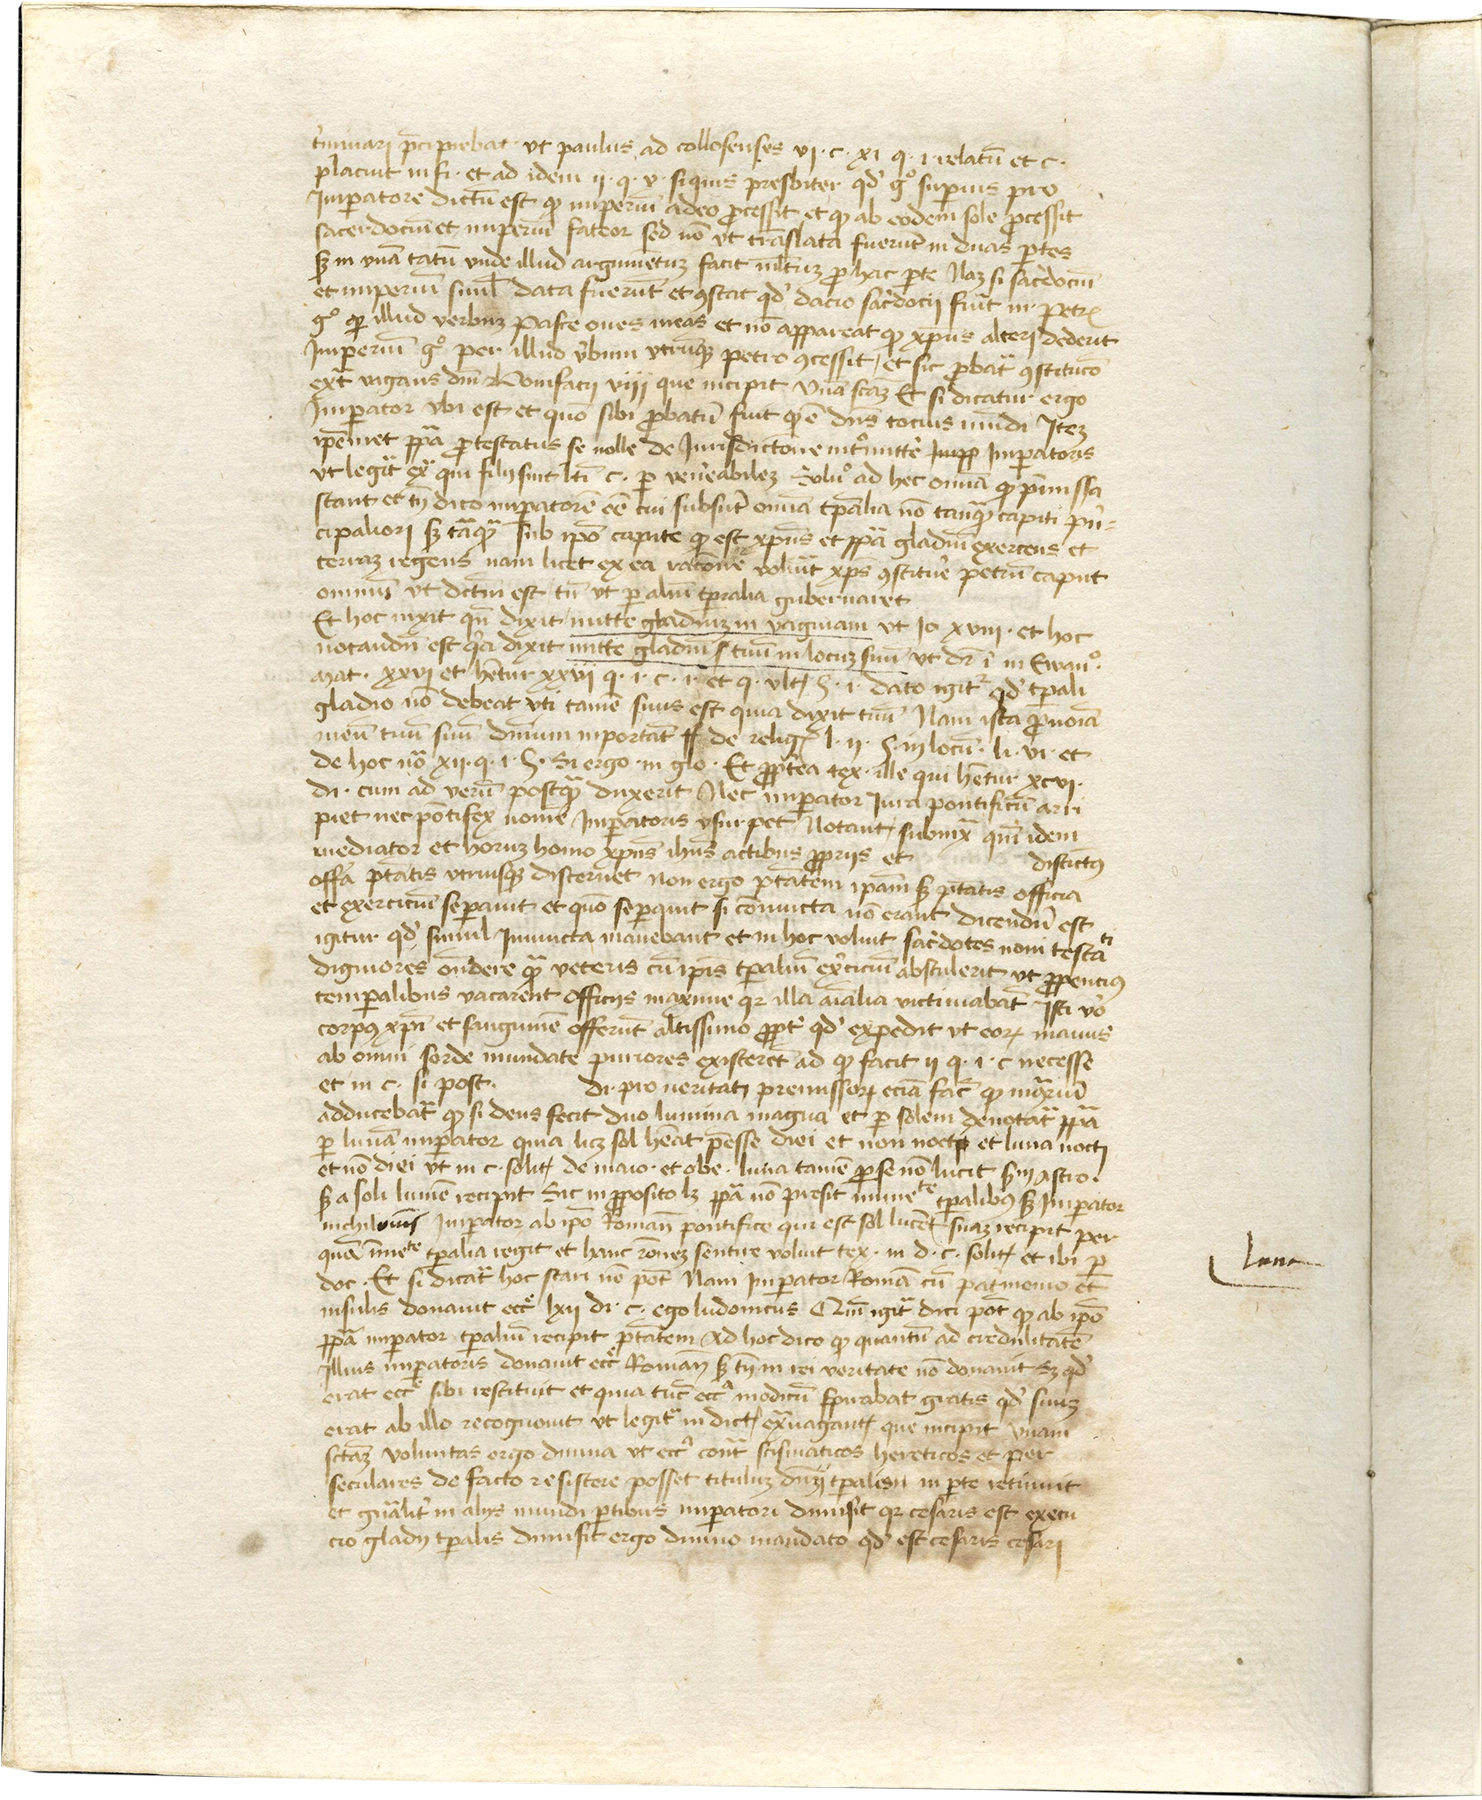 t'minari p̄cipiebat ut paulus ad collosenses vi · c · xi q · i · relatū et c ·
placuit in fi · et ad idem ii · q · v · siquis presbiter qd' gº superius pro
Imperatore dictū est qɔ imperiū adeo processit et qɔ ab eodem sole processit
sacerdociū et imperiū fateor sed nō ut trāslata fuerūt in duas ptes
sʒ in unā tātū unde illud argumētuʒ facit multuʒ pro hac pte Naʒ si sac'dociū
et imperiū siml' data fuerūt et ꝯstat qd' dacio sac'docii fiūt in petrū
gº per illud verbuʒ Pasce oves meas et nō appareat qɔ xp̄us alteri dederit
Imperiū gº per illud v'bum utrūqʒ petro ꝯcessit et sic probat' ꝯstitucō
ext' vagans dnī Bonifacii viii que incipit Unā sc̄aʒ Et si dicatur ergo
Imperator ubi est et quō sibi probatū fuit qɔ ē dn̄s tocius mūdi Iteʒ
ip̄emet pp̄a protestatus se nolle de Iurisdictōne intromitte' Impp Imperatoris
ut legit' ex' qui filii sint l̄ti c · per ven'eabileʒ Soluº ad hec om̄ia qɔ p̄missa
stant et tn̄ dico imperatorē eē cui subsūt om̄ia tpalia nō tanq̄ capiti pri=
cipaliori sʒ tāq̄ sub ip̄o capite qɔ est xp̄us et pp̄a gladiū exercens et
terraʒ regens nam licet ex ea racōne voluit xp̄s ꝯstitue' petrū caput
omniū ut dictū est tn̄ ut per aliū tpralia gubernaret
Et hoc inxit qn̄ dixit mitte gladiuʒ in vaginam ut Io xviii · et hoc
notandū est q'a dixit mitte gladiū tuū in locuʒ suū ut dr̄ in Ewanº ·
Mat · xxvi et hētur xxvii q · i · c · i · et q · ult' § · i · dato igit' qd' tpali
gladio nō debeat uti tamē suus est quia dixit tuū Nam ista pronoīa
meū tuū suū dn̄ium inportāt ff de relig' l · ii · § · in locū · li · vi · et
de hoc no' xii · q · i · § · Si ergo · in glo · Et propt'ea tex · ille qui hētur xcvi ·
di · cum ad verū postq̄ duxerit Nec imperator Iura pontificū arri
piet nec pōtifex nomē Imperatoris usurpet Notant' subinx' qm̄ idem
mediator et horuʒ homo xp̄us ih̄us actibus propriis et distictis
offīa ptātis utriusqʒ discernet non ergo ptātem ipam sʒ ptātis officia
et exerciciū separavit et quō separavit si coniuncta nō erant dicendū est
igitur qd' simul Iniuncta manebant et in hoc voluit sac'dotes novi testāti
digniores ondere q̄ veteris cū ipis tpaliū ex'ciciū abstulerit ut propencius
temporalibus vacarent officiis maxime qr illa aīalia victimabāt Isti vº
corpus xp̄i et sanguinē offerūt altissimo propt' qd' expedit ut eorʒ manus
ab omni sorde mundate puriores existeret ad qɔ facit ii q · i · c necesse
et in c · si post · di · pro veritati premissorʒ eciā fac' qɔ in ɔ̄riū
adducebat' qɔ si deus fecit duo lumina magna et per solem denotat' pp̄a
per lunā imperator quia licʒ sol hēat p̄esse diei et non nocti et luna nocti
et nō diei ut in c · solit' de maio · et obe · luna tamē per se nō lucit sʒ in Astro ·
sʒ a soli lumē recipit Sic in proposito lʒ pp̄a nō presit inmete tpalibus sʒ Imperator
nichilominus Imperator ab ipō Romano pontifice qui est sol lucēt suaʒ recipit per
quā inmete tpalia regit et hanc rōneʒ sentire voluit tex · in d · c · solit' et ibi per
doc · Et si dicat' hoc stari nō pōt Nam Imperator Romā cū patrimonio et
insulis donavit ecce' lxii di · c · ego ludovicus Quō igit' dici pōt qɔ ab ipō
pp̄a imperator tpaliū recipit ptātem Ad hoc dico qɔ quantū ad credulitatē
Illius imperatoris donavit ecce' Romanā sʒ tn̄ in rei veritate nō donavit sʒ qd'
erat ecce' sibi restituit et quia tūc ecc'a modicū spirabat gratis qd' suuʒ
erat ab illo recognovit ut legit' in dict' ex'vagant' que incipit Unam
sctāʒ voluntas ergo divina ut ecc'a cont' scismaticos hereticos et per
seculares de facto resistere posset tituluʒ dnii tpaliuʒ in pte retinuit
et gn̄alit' in aliis mundi ptibus imperatori dimisit qr cesaris est execu
cio gladii tpalis dimisit ergo divino mandato qd' est cesaris cesari
luna